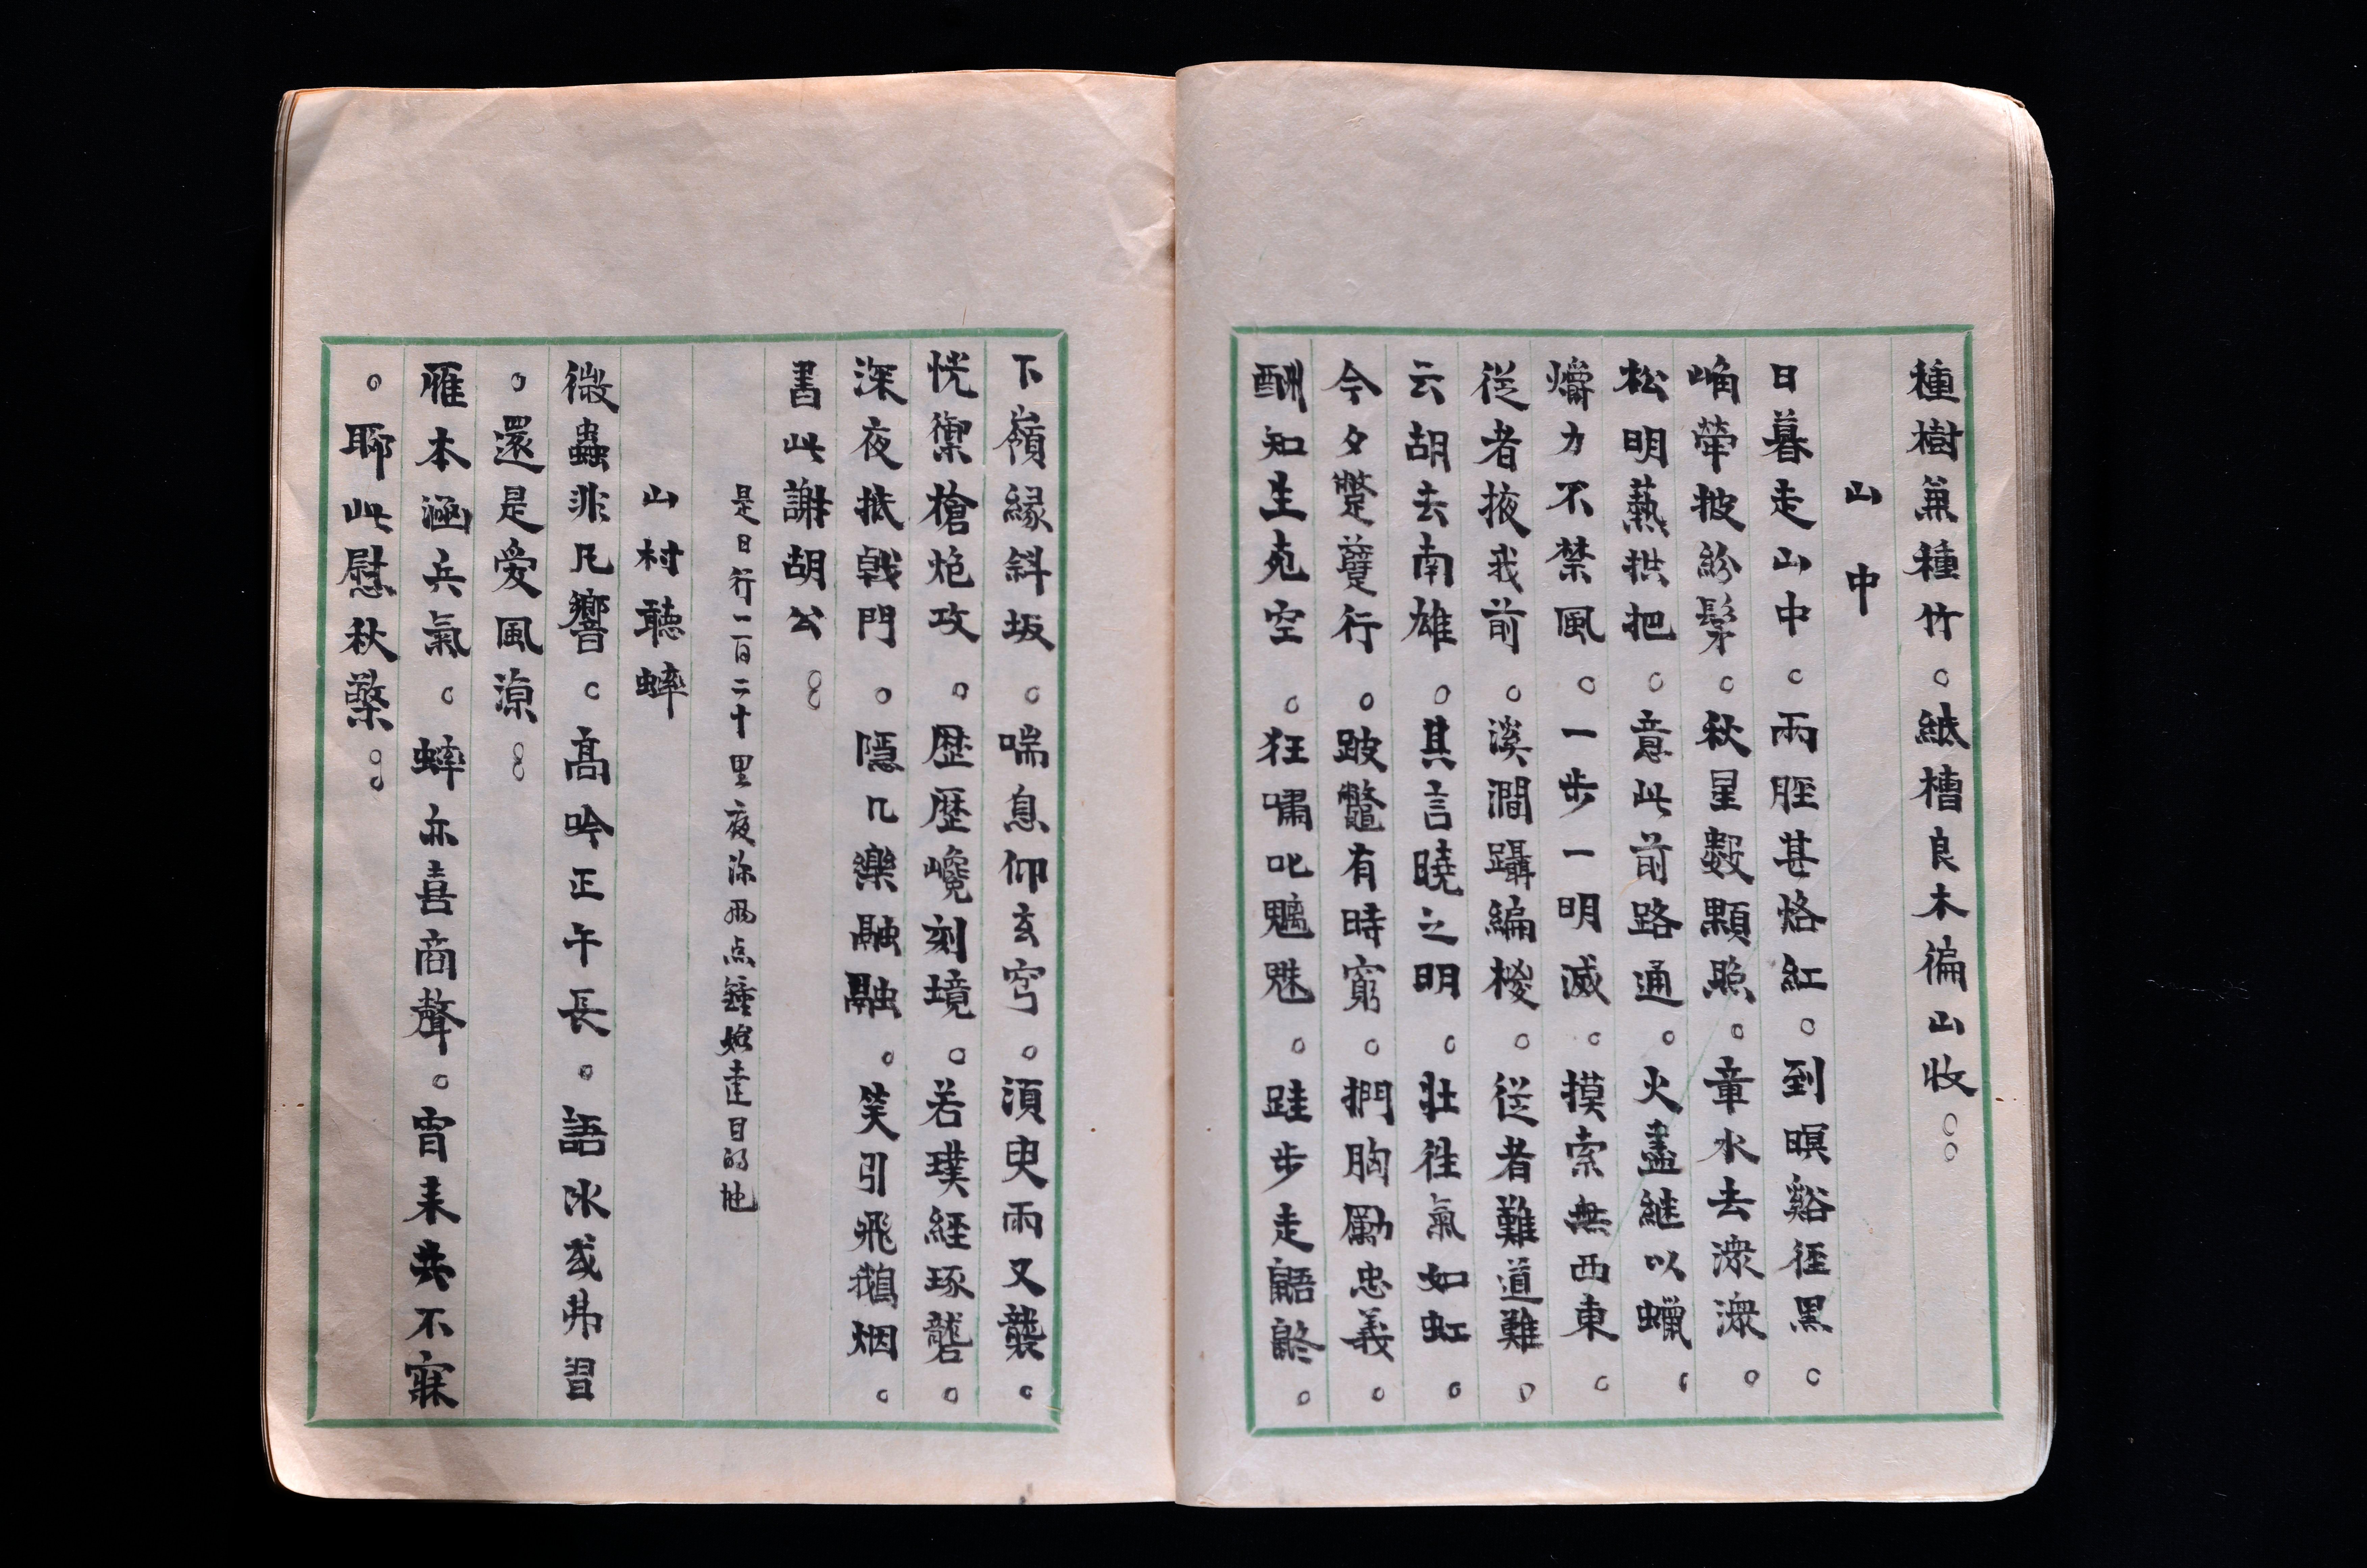 種樹兼種竹。紙槽良木徧山收。。
山中
日暮走山中。兩脛甚烙紅。到暝谿徑黑。
崅犖披紛髳。秋星數顆照。章水去潨潨。
松明爇拱把。意此前路通。火盡継以蠟。
爝力不禁風。一步一明滅。摸索無西東。
從者掖我前。溪澗躡編椶。從者難道難
云胡去南雄。其言曉之明。壯徃氣如虹。
今夕蹩躠行。跛鼈有時窮。捫胸勵忠義。
酬知生死空。狂嘯叱魑魅。跬步走鼯鼨。
下嶺緣斜坂。喘息仰玄穹。須臾雨又襲。
恍禦槍炮攻。歷歷巉刻境。若璞經琢礱。
深夜抵戟門。隱几樂融融。笑引飛鵝烟。
書此謝胡公。。
是日行一百二十里夜深兩点鐘始達目的地
山村聽蟀
微蟲非凡響。高吟正午長。語冰或弗習
。還是愛風涼。。
雁本涵兵氣。蟀亦喜商聲。宵来共不寐
。聊此慰秋檠。。